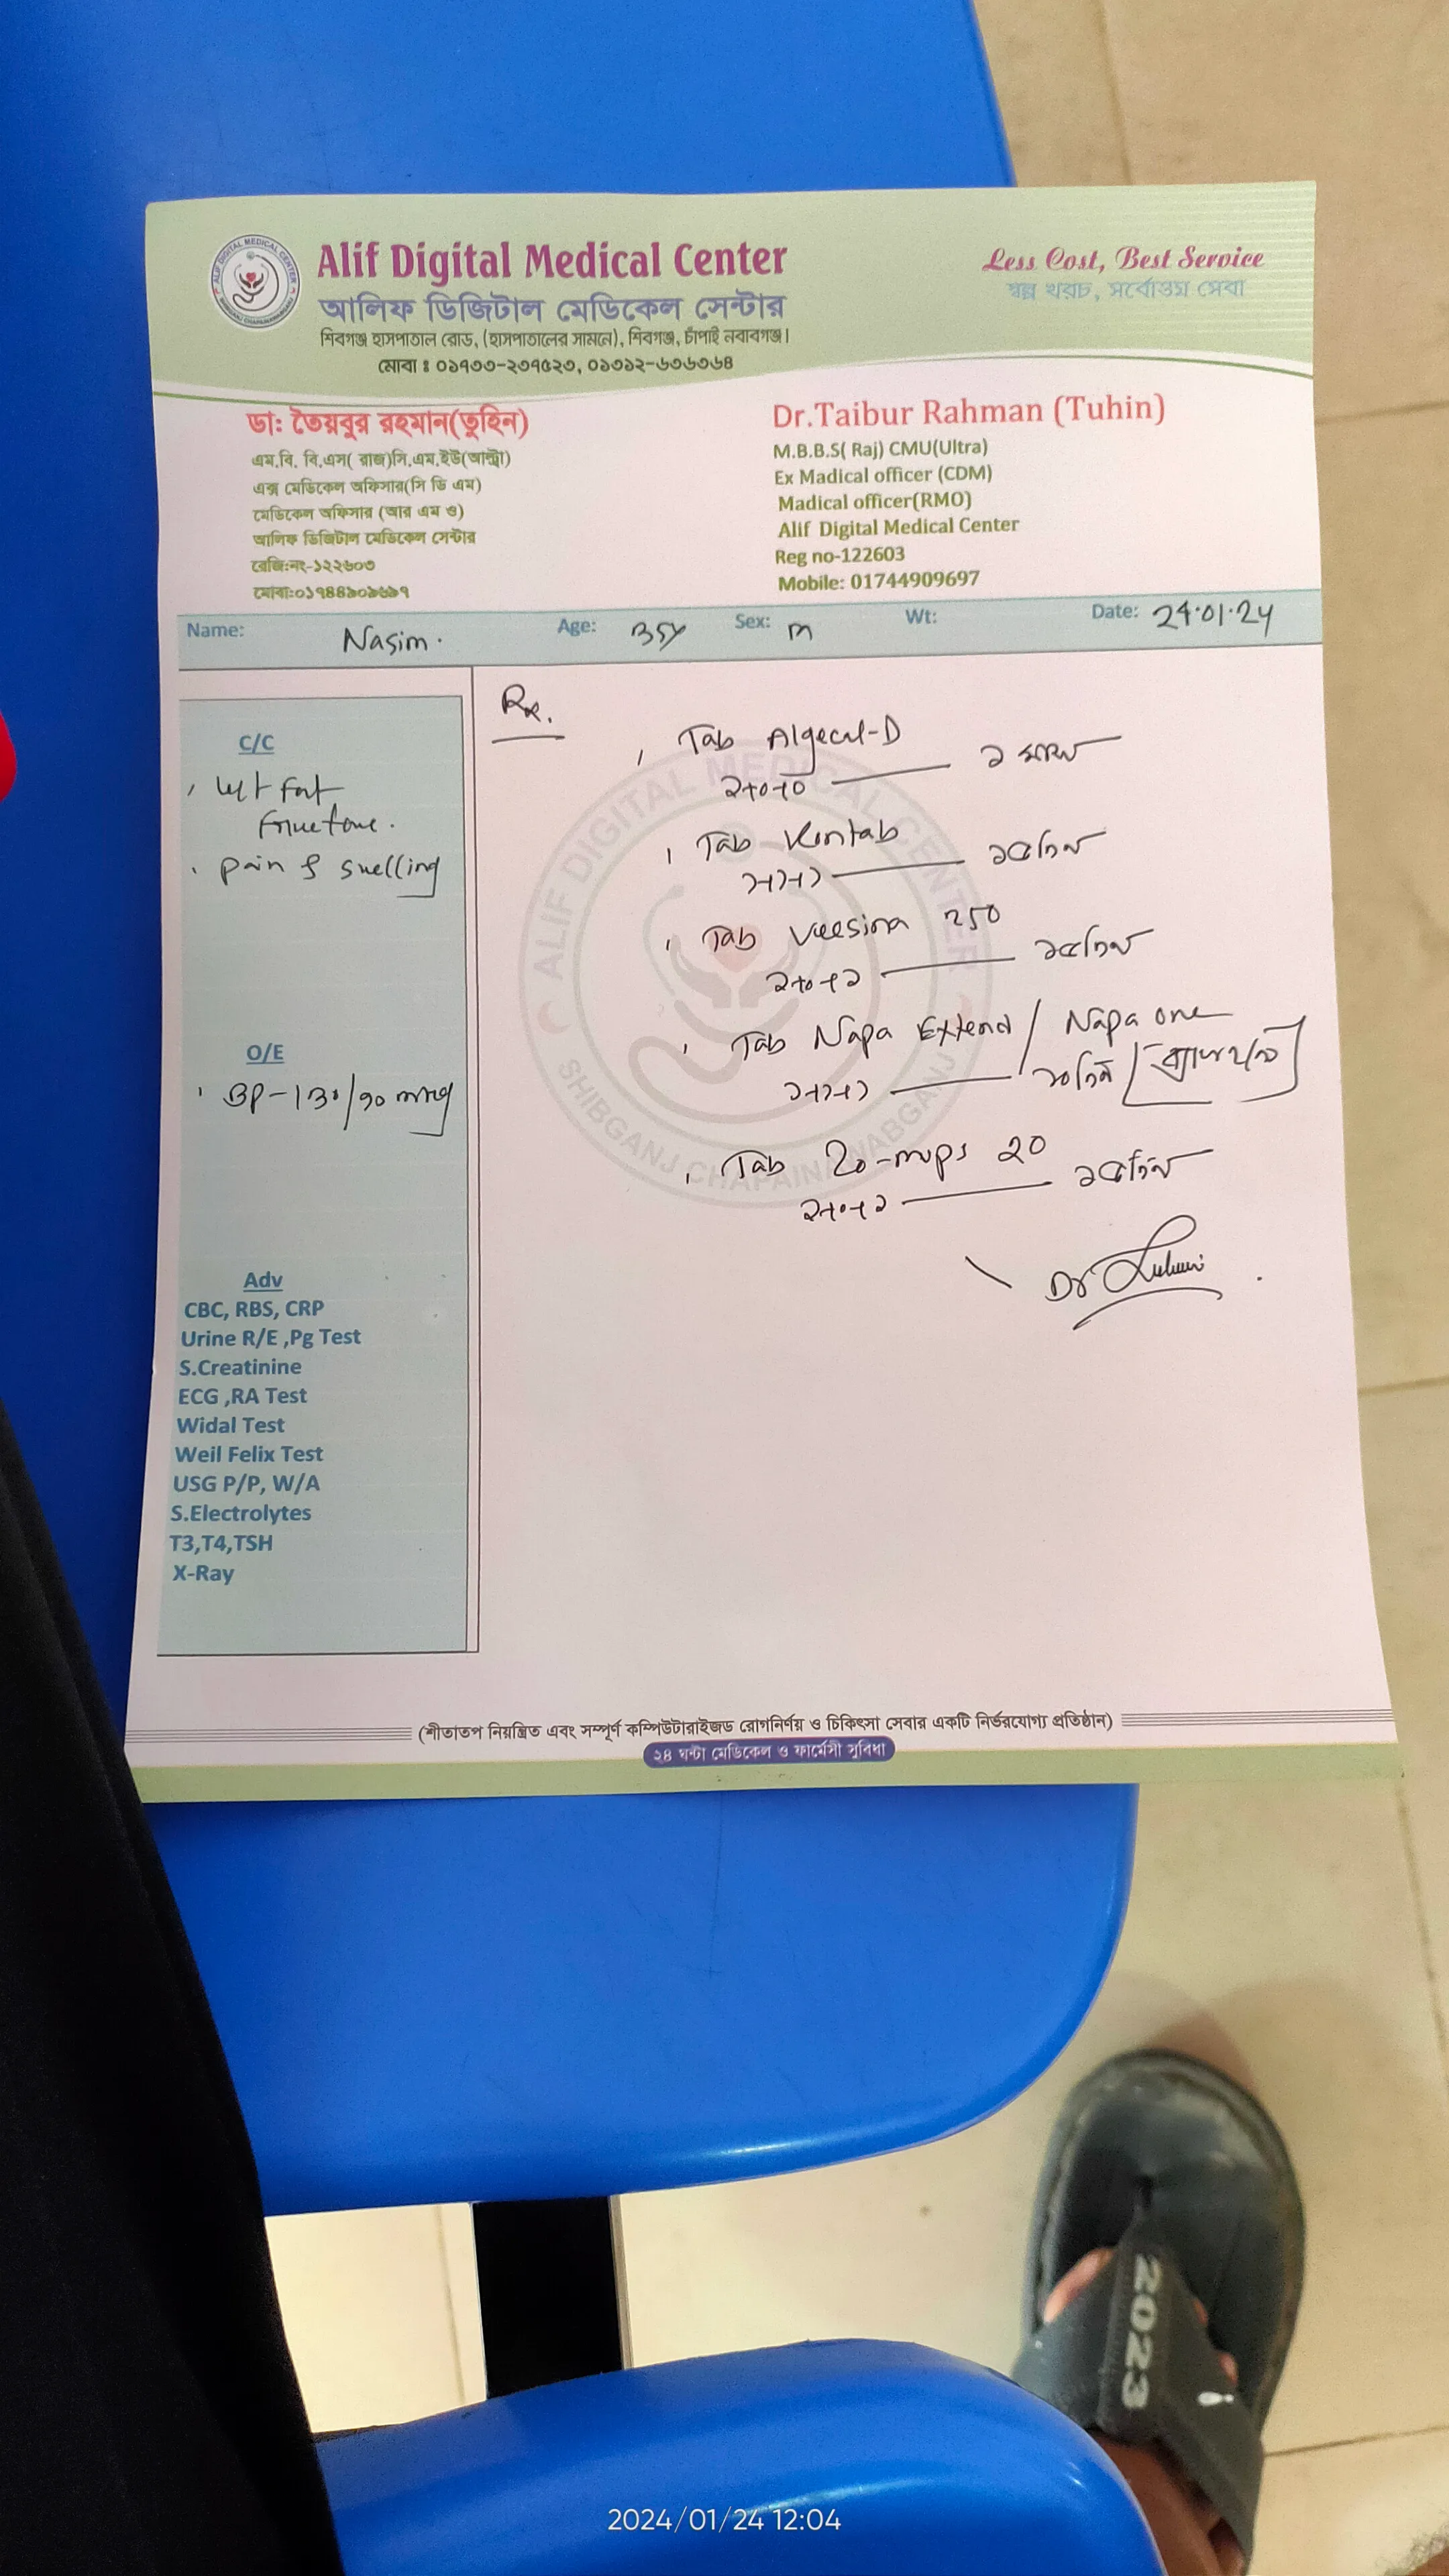 Alif Digital Medical Center
আলিফ ডিজিটাল মেডিকেল সেন্টার
শিবগঞ্জ হাসপাতাল রোড, (হাসপাতালের সামনে), শিবগঞ্জ, চাঁপাই নবাবগঞ্জ।
মোবা ঃ ০১৭৩৩-২৩৭৫২৩, ০১৩১২-৬৩৬৩৬৪
Less Cost, Best Service
স্বল্প খরচ, সর্বোত্তম সেবা
ALIF DIGITAL MEDICAL CENTER
SHIBGANJ CHAPAINAWABGANJ
ডা: তৈয়বুর রহমান(তুহিন)
এম.বি. বি.এস( রাজ)সি.এম.ইউ(আল্ট্রা)
এক্স মেডিকেল অফিসার(সি ডি এম)
মেডিকেল অফিসার (আর এম ও)
আলিফ ডিজিটাল মেডিকেল সেন্টার
রেজি:নং-১২২৬০৩
মোবা:০১৭৪৪৯০৯৬৯৭
Dr.Taibur Rahman (Tuhin)
M.B.B.S( Raj) CMU(Ultra)
Ex Madical officer (CDM)
Madical officer(RMO)
Alif Digital Medical Center
Reg no-122603
Mobile: 01744909697
Name: Nasim. Age: 35y Sex: m Wt: Date: 24.01.24
C/C
pain & swelling
O/E
BP-130/90 mmHg
Adv
CBC, RBS, CRP
Urine R/E ,Pg Test
S.Creatinine
ECG ,RA Test
Widal Test
Weil Felix Test
USG P/P, W/A
S.Electrolytes
T3,T4,TSH
X-Ray
Rx.
Tab Algecal-D
১+০+০ ১ মাস
Tab
১+১+১ ১৫দিন
Tab 250
১+০+১ ১৫দিন
Tab Napa Extend / Napa one
১+১+১ ১০দিন
Tab 20
১+০+১ ১৫দিন
Dr
ALIF DIGITAL MEDICAL CENTER
SHIBGANJ CHAPAINAWABGANJ
(শীতাতপ নিয়ন্ত্রিত এবং সম্পূর্ণ কম্পিউটারাইজড রোগনির্ণয় ও চিকিৎসা সেবার একটি নির্ভরযোগ্য প্রতিষ্ঠান)
২৪ ঘন্টা মেডিকেল ও ফার্মেসী সুবিধা
2023
2024/01/24 12:04